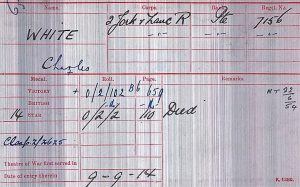 Name. Corps. Rank. Regtl. No.
WHITE 2 York & Lanc R Pte 7156
Charles
Medal. Roll. Page. Remarks.
VICTORY + 0/2/102 B6 659
BRITISH -do- -do-
14 STAR 0/2/2 110 Died
Clasp
Theatre of War first served in
Date of entry therein 9-9-14
K. 1380.